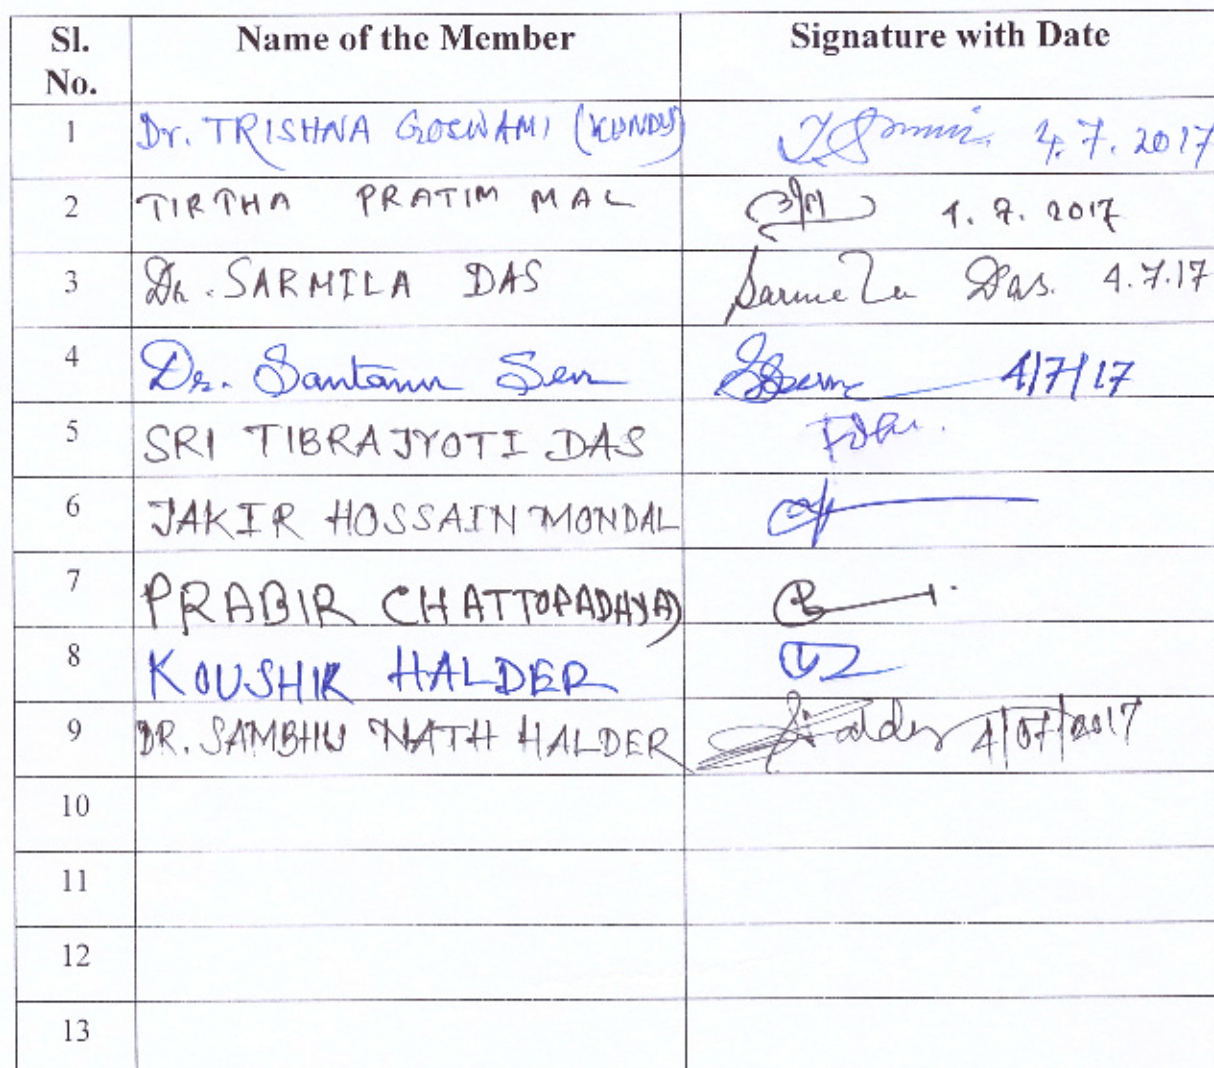 Sl. No. Name of the Member Signature with Date
1 Dr. TRISHNA GOSWAMI (KUNDU) 4.7.2017
2 TIRTHA PRATIM MAL 4.7.2017
3 Dr. SARMILA DAS Sarmila Das. 4.7.17
4 Dr. Santanu Sen SSen 4/7/17
5 SRI TIBRAJYOTI DAS
6 JAKIR HOSSAIN MONDAL
7 PRABIR CHATTOPADAYA
8 KOUSHIK HALDER
9 DR. SAMBHU NATH HALDER Halder 4/07/2017
10
11
12
13